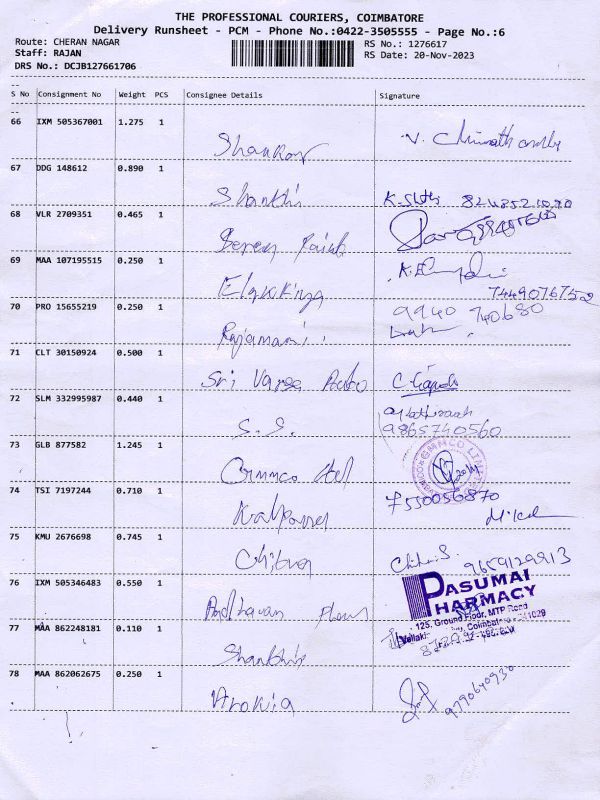 THE PROFESSIONAL COURIERS, COIMBATORE
Delivery Runsheet - PCM - Phone No.:0422-3505555 - Page No.:6
Route: CHERAN NAGAR
RS No.: 1276617
Staff: RAJAN
RS Date: 20-Nov-2023
DRS No.: DCJB127661706
S No Consignment No Weight PCS Consignee Details Signature
66 IXM 505367001 1.275 1
Shankar
67 DDG 148612 0.890 1
Shanthi
68 VLR 2709351 0.465 1
69 MAA 107195515 0.250 1
7449076752
70 PRO 15655219 0.250 1
9940 740680
Rajamani
71 CLT 30150924 0.500 1
Sri Varsa Auto
72 SLM 332995987 0.440 1
S.S.
9865740560
73 GLB 877582 1.245 1
GMMCO LIMITED
Gmmco Ltd
74 TSI 7197244 0.710 1
7550056870
Kalpana
75 KMU 2676698 0.745 1
Chitra
9659129813
76 IXM 505346483 0.550 1
PASUMAI
PHARMACY
125, Ground Floor, MTP Road
77 MAA 862248181 0.110 1
Shanthi
78 MAA 862062675 0.250 1
Arokia
9790640930